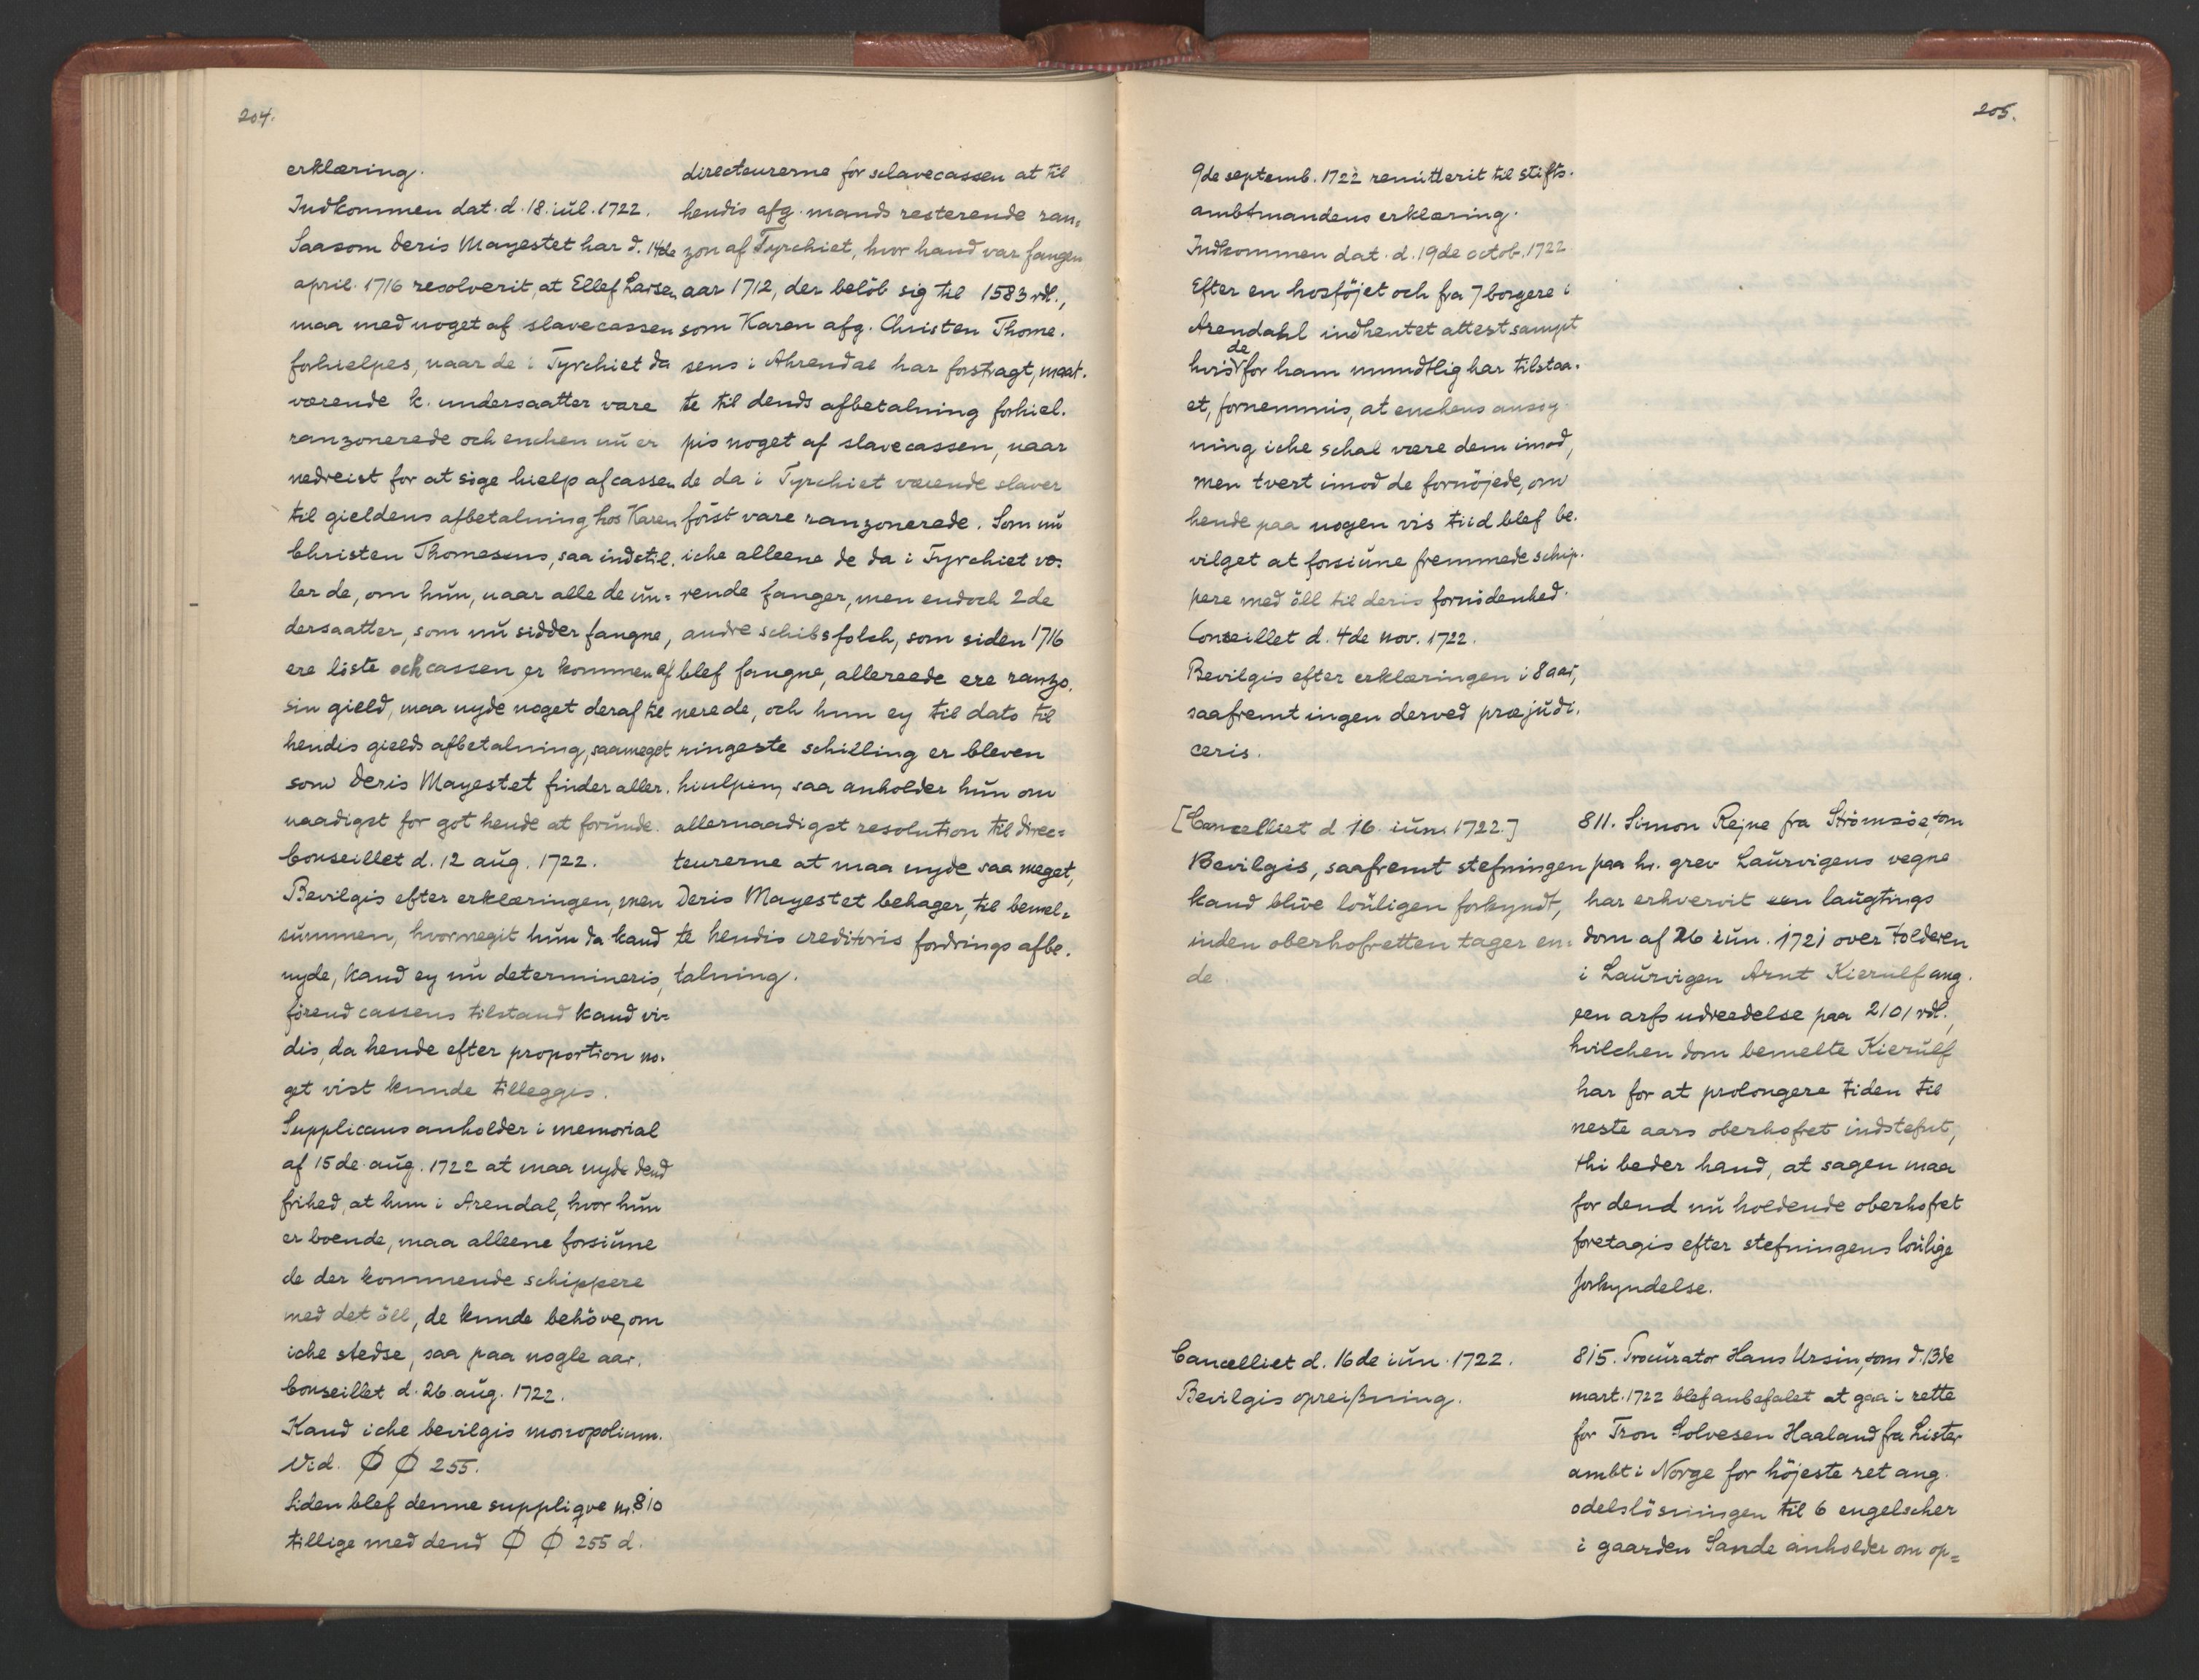 204.
erklæring.
Indkommen dat. d. 18. iul. 1722.
Saasom Deris Mayestet har d. 14de
april 1716 resolverit, at Ellef Larsen
maa med noget af slavecassen
forhielpes, naar de i Tyrchiet da
værende k. undersaatter vare
ranzonerede och enchen nu er
nedreist for at sige hielp af cassen
til gieldens afbetalning hos Karen
Christen Thomesens, saa indstil.
ler de, om hun, naar alle de un=
dersaatter, som nu sidder fangne,
ere löste och cassen er kommen af
sin gield, maa nyde noget deraf til
hendis gields afbetalning, saameget
som Deris Mayestet finder aller.
naadigst for got hende at forunde.
Conseillet d. 12 aug. 1722.
Bevilgis efter erklæringen, men
summen, hvormegit hun da kand
nyde, kand ey nu determineris,
förend cassens tilstand kand vi=
dis, da hende efter proportion no.
get vist kunde tilleggis.
Supplicans anholder i memorial
af 15de aug. 1722 at maa nyde dend
frihed, at hun i Arendal, hvor hun
er boende, maa alleene forsiune
de der kommende schippere
med det öll, de kunde behöve, om
iche stedse, saa paa nogle aar.
Conseillet d. 26 aug. 1722.
Kand iche bevilgis monopolium.
Vid. Ø Ø 255.
Siden blef denne suppliqve nr. 810
tillige med dend Ø Ø 255 d.
directeurerne for sclavecassen at til
hendis afg. mands resterende ran=
zon af Tyrchiet, hvor hand var fangen
aar 1712, der belöb sig til 1583 rdl.,
som Karen afg. Christen Thome.
sens i Ahrendal har forstragt, maat.
te til dends afbetalning forhiel.
pis noget af slavecassen, naar
de da i Tyrchiet værende slaver
först vare ranzonerede. Som nu
iche alleene de da i Tyrchiet væ=
rende fanger, men endoch 2de
andre schibsfolch, som siden 1716
blef fangne, allereede ere ranzo.
nerede, och hun ey til dato til
ringeste schilling er bleven
hiulpen, saa anholder hun om
allernaadigst resolution til direc=
teurerne at maa nyde saa meget,
Deris Mayestet behager, til bemel=
te hendis creditoris fordrings afbe.
talning.
205.
9de septemb. 1722 remitterit til stifts.
ambtmandens erklæring.
Indkommen dat. d. 19de octob. 1722.
Efter en hosföjet och fra 7 borgere i
Arendahl indhentet attest sampt
hvis de for ham mundtlig har tilstaa.
et, fornemmis, at enchens ansög.
ning iche schal være dem imod,
men tvert imod de fornöjede, om
hende paa nogen vis tiid blef be.
vilget at forsiune fremmede schip.
pere med öll til deris fornödenhed.
Conseillet d. 4de nov. 1722.
Bevilgis efter erklæringen i 8 aar,
saafremt ingen derved præjudi.
ceris.
[Cancelliet d. 16. iuni 1722.]
Bevilgis, saafremt stefningen
kand blive louligen forkyndt,
inden oberhofretten tager en=
de.
811. Simon Rejne fra Strömsöe, som
paa hr. grev Laurvigens vegne
har erhvervit een laugtings
dom af 26 iun. 1721 over tolderen
i Laurvigen Arnt Kierulf ang.
een arfs udreedelse paa 2101 rdl.,
hvilchen dom bemelte Kierulf
har for at prolongere tiden til
neste aars oberhofret indstefnt,
thi beder hand, at sagen maa
for dend nu holdende oberhofret
foretagis efter stefningens loulige
forkyndelse.
Cancelliet d. 16de iun. 1722.
Bevilgis opreißning.
815. Procurator Hans Ursin, som d. 13de
mart. 1722 blef anbefalet at gaa i rette
for Tron Solvesen Haaland fra Lister
ambt i Norge for höjeste ret ang.
odelslösningen til 6 engelscher
i gaarden Sande anholder om op=